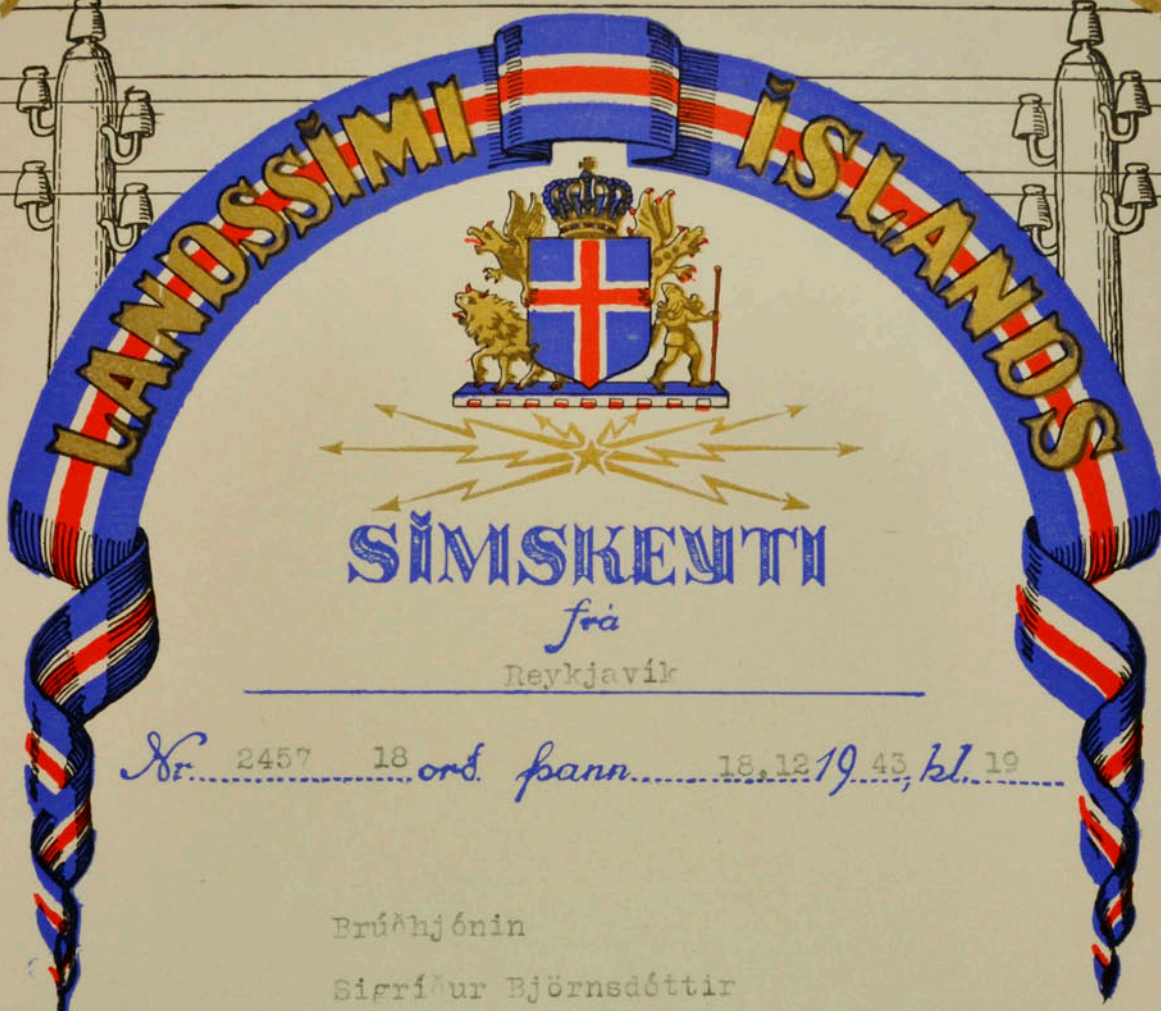 LANDSSÍMI ÍSLANDS
SÍMSKEYTI
frá
Reykjavík
Nr. 2457 18 orð þann 18.12 19 43, kl. 19
Brúðhjónin
Sigríður Björnsdóttir